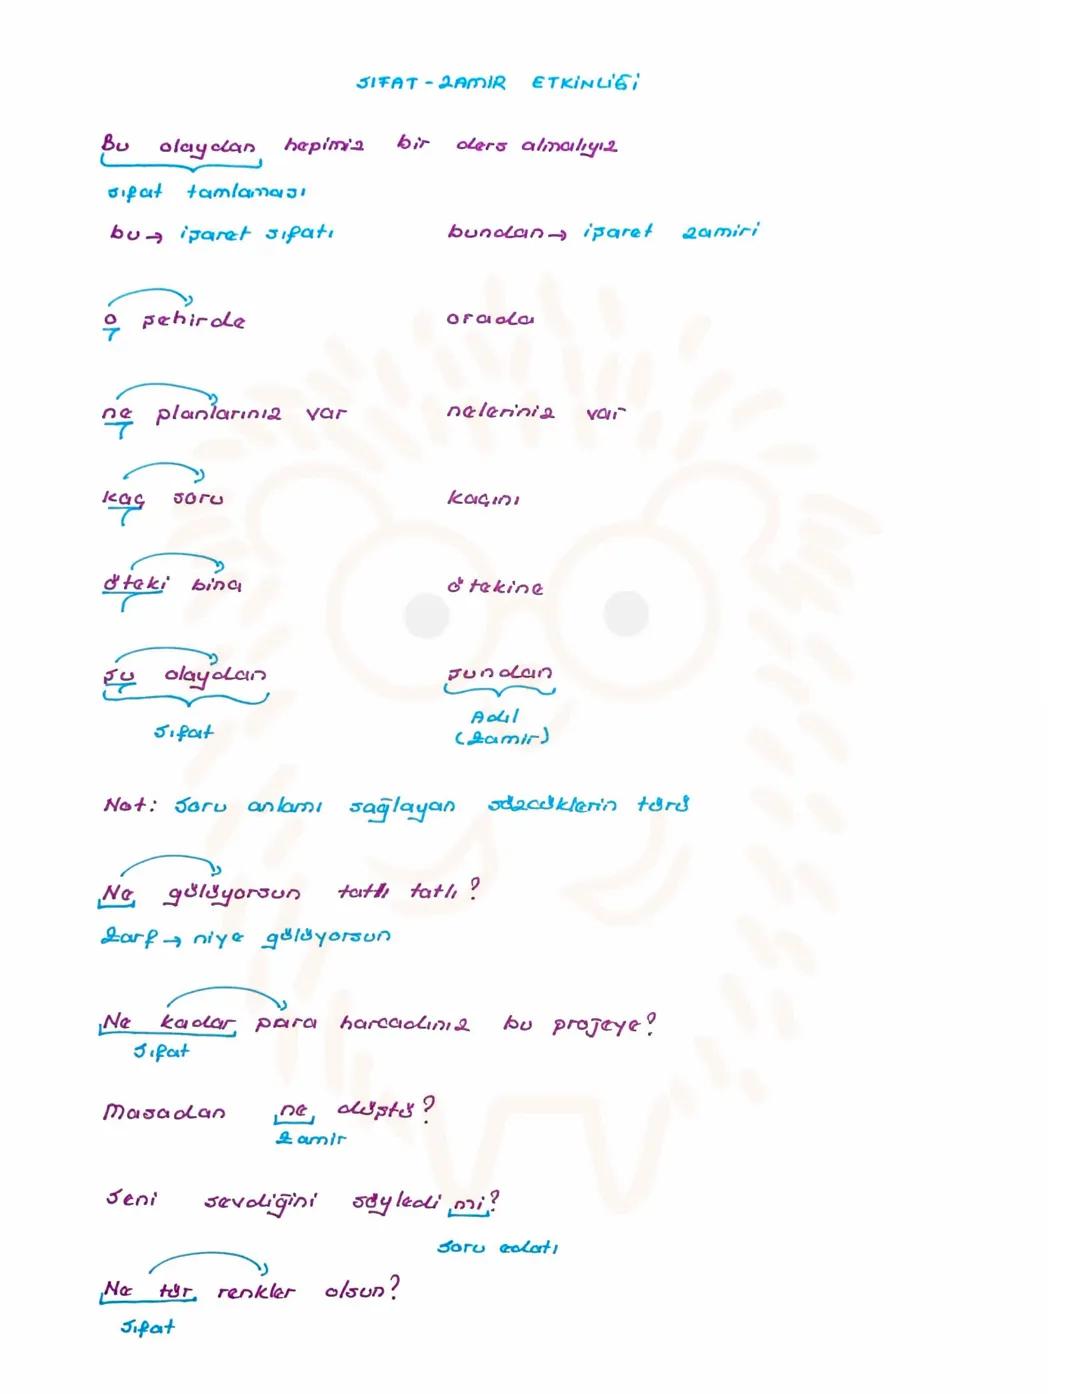 SIFAT - ZAMİR ETKİNLİĞİ
Bu olaydan hepimiz bir ders almalıyız
sıfat tamlaması
bu → işaret sıfatı bundan → işaret zamiri
o şehirde orada
ne planlarınız var neleriniz var
kaç soru kaçını
öteki bina ötekine
şu olaydan şundan
Sıfat Adıl
(Zamir)
Not: Soru anlamı sağlayan sözcüklerin türü
Ne gülüyorsun tatlı tatlı?
Zarf → niye gülüyorsun
Ne kadar para harcadınız bu projeye?
Sıfat
Masadan ne düştü?
Zamir
Seni sevdiğini söyledi mi?
Soru edatı
Ne tür renkler olsun?
Sıfat